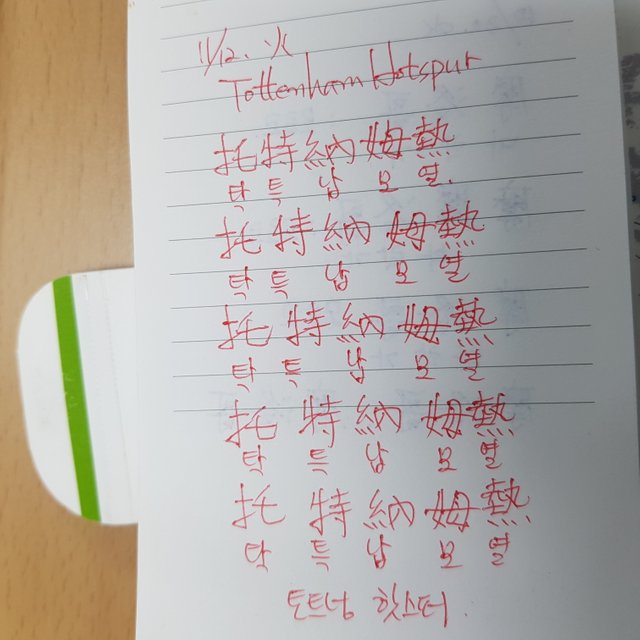 11/12. 火
Tottenham Hotspur
托特納姆熱
탁 특 납 모 열.
托特納姆熱
탁 특 납 모 열
托特納姆熱
탁 특 납 모 열
托特納姆熱
탁 특 납 모 열
托特納姆熱
탁 특 납 모 열
토트넘 핫스퍼.